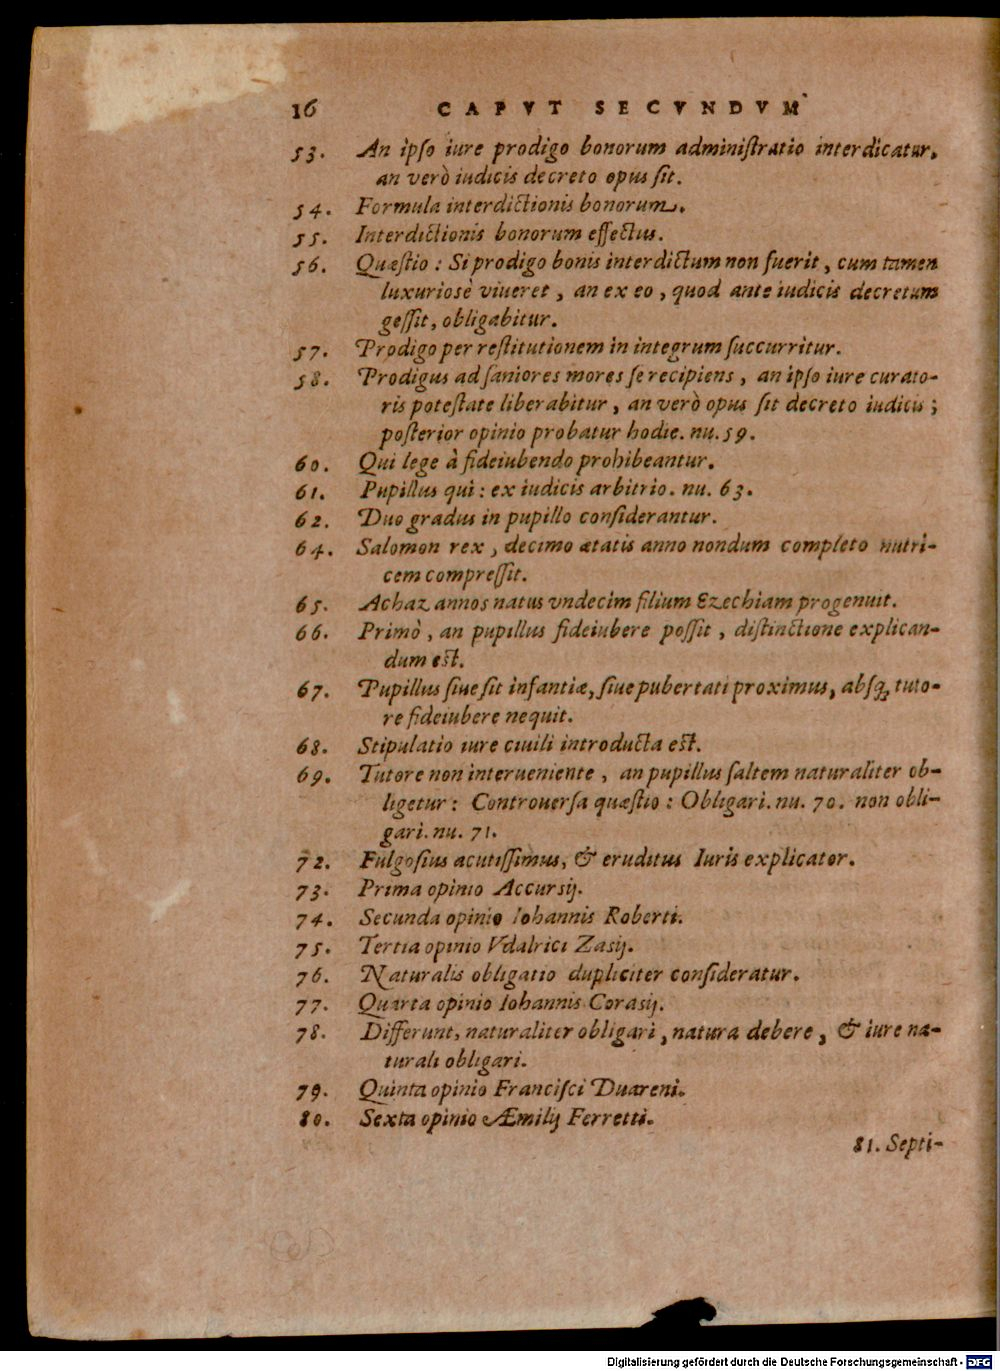 16 CAPVT SECVNDVM
53. An ipſo iure prodigo bonorum adminiſtratio interdicatur,
an verò iudicis decreto opus ſit.
54. Formula interdictionis bonorum.
55. Interdictionis bonorum effectus.
56. Quæſtio : Si prodigo bonis interdictum non fuerit, cum tamen
luxuriosè viueret, an ex eo, quod ante iudicis decretum
geſſit, obligabitur.
57. Prodigo per reſtitutionem in integrum ſuccurritur.
58. Prodigus ad ſaniores mores ſe recipiens, an ipſo iure curato-
ris poteſtate liberabitur, an verò opus ſit decreto iudicis ;
poſterior opinio probatur hodie. nu. 59.
60. Qui lege à fideiubendo prohibeantur.
61. Pupillus qui : ex iudicis arbitrio. nu. 63.
62. Duo gradus in pupillo conſiderantur.
64. Salomon rex, decimo ætatis anno nondum completo nutri-
cem compreſſit.
65. Achaz annos natus vndecim filium Ezechiam progenuit.
66. Primò, an pupillus fideiubere poſſit, diſtinctione explican-
dum eſt.
67. Pupillus ſiue ſit infantiæ, ſiue pubertati proximus, abſq; tuto-
re fideiubere nequit.
68. Stipulatio iure ciuili introducta eſt.
69. Tutore non interueniente, an pupillus ſaltem naturaliter ob-
ligetur : Controuerſa quæſtio : Obligari. nu. 70. non obli-
gari. nu. 71.
72. Fulgoſius acutiſſimus, & eruditus Iuris explicator.
73. Prima opinio Accursij.
74. Secunda opinio Iohannis Roberti.
75. Tertia opinio Vdalrici Zasij.
76. Naturalis obligatio dupliciter conſideratur.
77. Quarta opinio Iohannis Corasij.
78. Differunt, naturaliter obligari, natura debere, & iure na-
turali obligari.
79. Quinta opinio Franciſci Duareni.
80. Sexta opinio Æmilij Ferretti.
81. Septi-
Digitalisierung gefördert durch die Deutsche Forschungsgemeinschaft - DFG